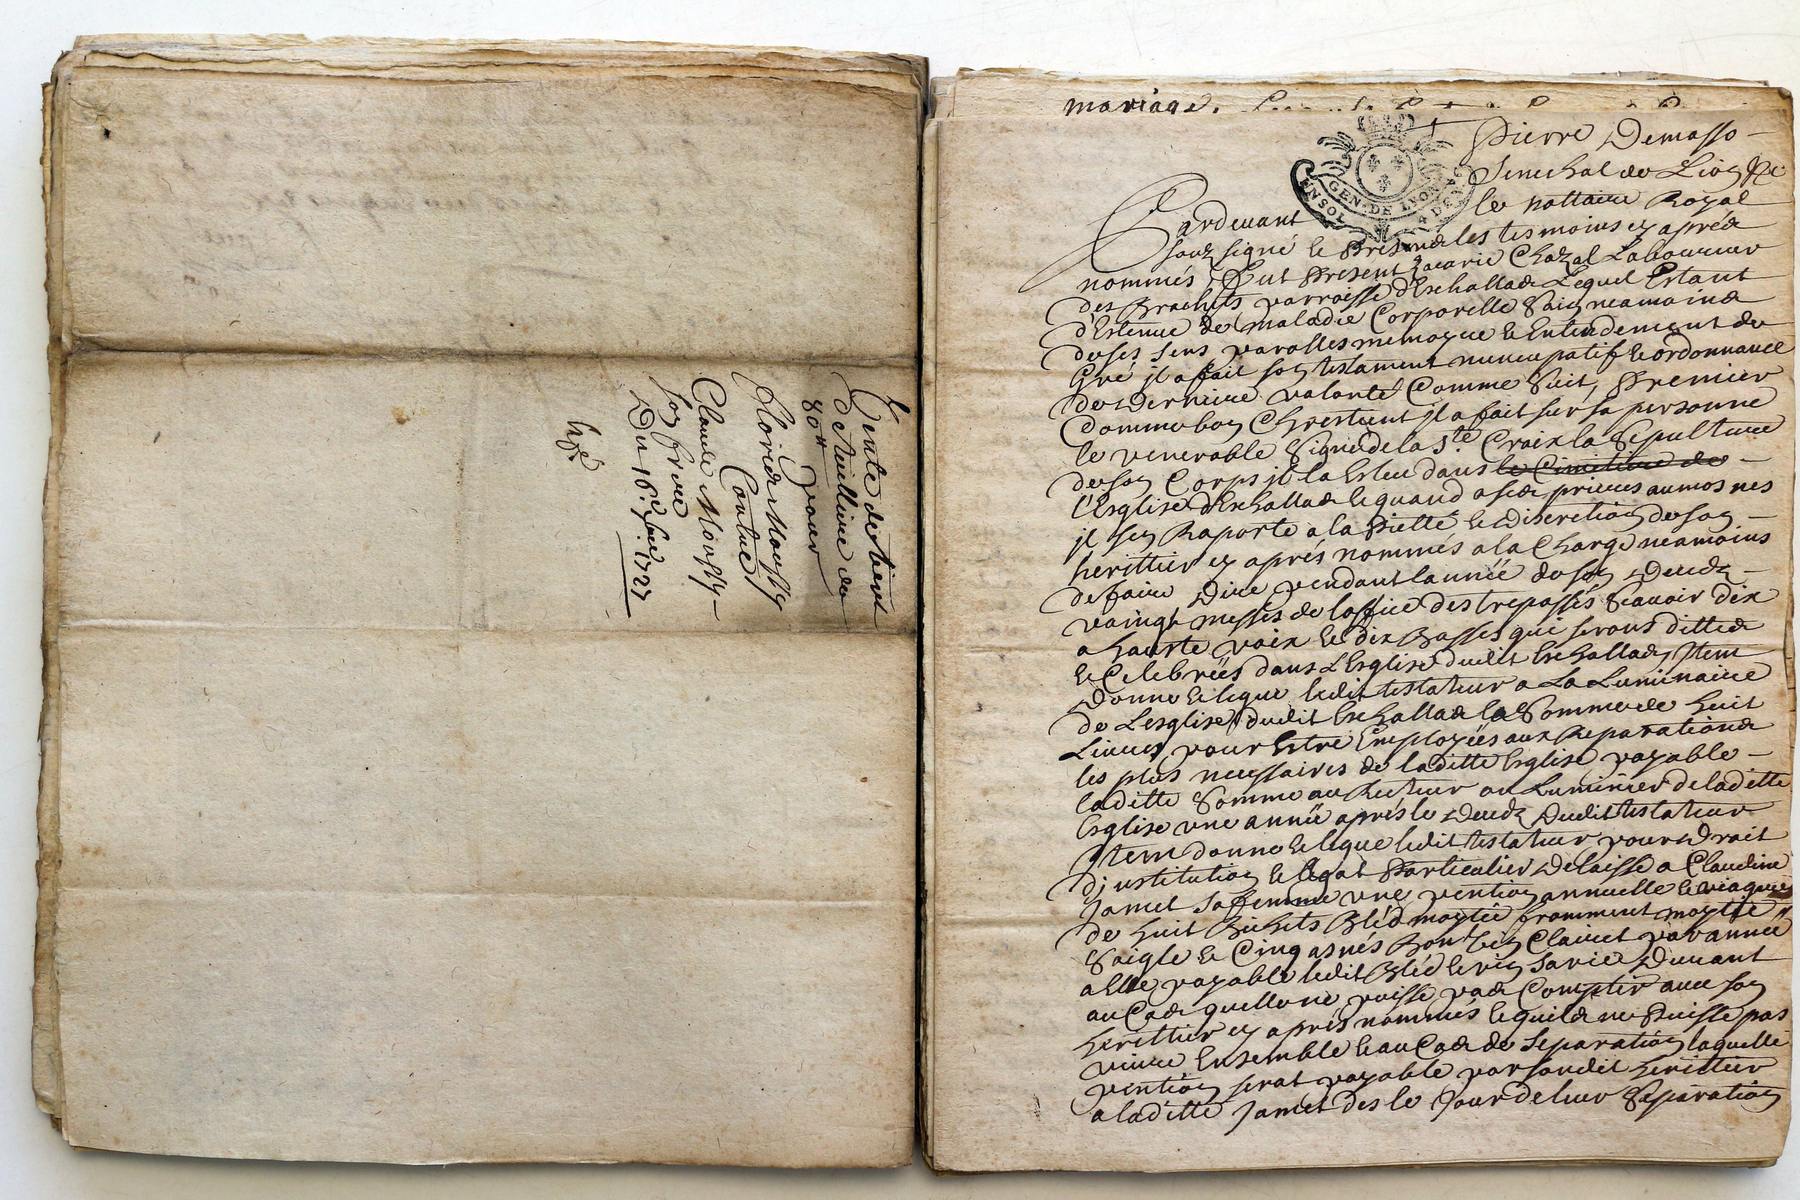 Vente de biens
d'Aveillure de
80ᵗᵗ pour
Claude Mousty
son frere
Du 16ᵉ 1727
mariage.
Pierre Demasso
Senechal de Lion &c
GEN. DE LYON
Pardevant le nottaire Royal
souz signé & presendz les tesmoins cy aprés
nommés, fut Present Zacarie Chazal Laboureur
des Brachets parroisse d'Eschallads Lequel Estant
d'Estenue de maladie Corporelle Sain neamoins
de ses sens parolles memoyre & Entendement de
Gré il a fait son testament nuncupatif & ordonnance
de derniere volonté Comme Suit, Premier
Comme bon Chrestient il a fait sur sa personne
le venerable Signe de la Sᵗᵉ Croix la Sepulture
de son Corps il la Esleu dans le Cimetiere de
l'Esglise d'Eschallads & quand a ses prieres aumosnes
il sen Raporte a la Pietté & discretion de son
herittier cy aprés nommés a la Charge neamoins
de faire Dire pendant lannée de son Decedz
vaingt messes de loffice des trepassés Scavoir dix
a hautte voix & dix Basses qui seront dittes
& Celebrées dans LEsglise dudit Eschallads, Item
Donne & legue ledit testateur a La Luminaire
de Lesglise dudit Eschallads la Somme de huit
Livres pour Estre Employées aux Reparations
les plus necessaires de laditte Esglise payable
laditte Somme au Recteur ou Luminier de laditte
Esglise une année aprés le Decedz Dudit testateur
Item donne & legue ledit testateur pour Droit
d'justitution & legat Particulier Delaisse a Claudine
Jamet Sa femme une pention annuelle & viagere
de huit Bichets Bléd moytié froment moytié
Soigle & Cinq asnés Bon vin Clairet par année
a Elle payable ledit Bléd & vin Sa vie Durant
au Cas quelle ne puisse pas Compatir avec son
herittier cy aprés nommés & quils ne Puisse pas
vivre Ensemble & au Cas de Separation laquelle
pention serat payable par sondit herittier
a laditte Jamet des le Jour de leur Separation